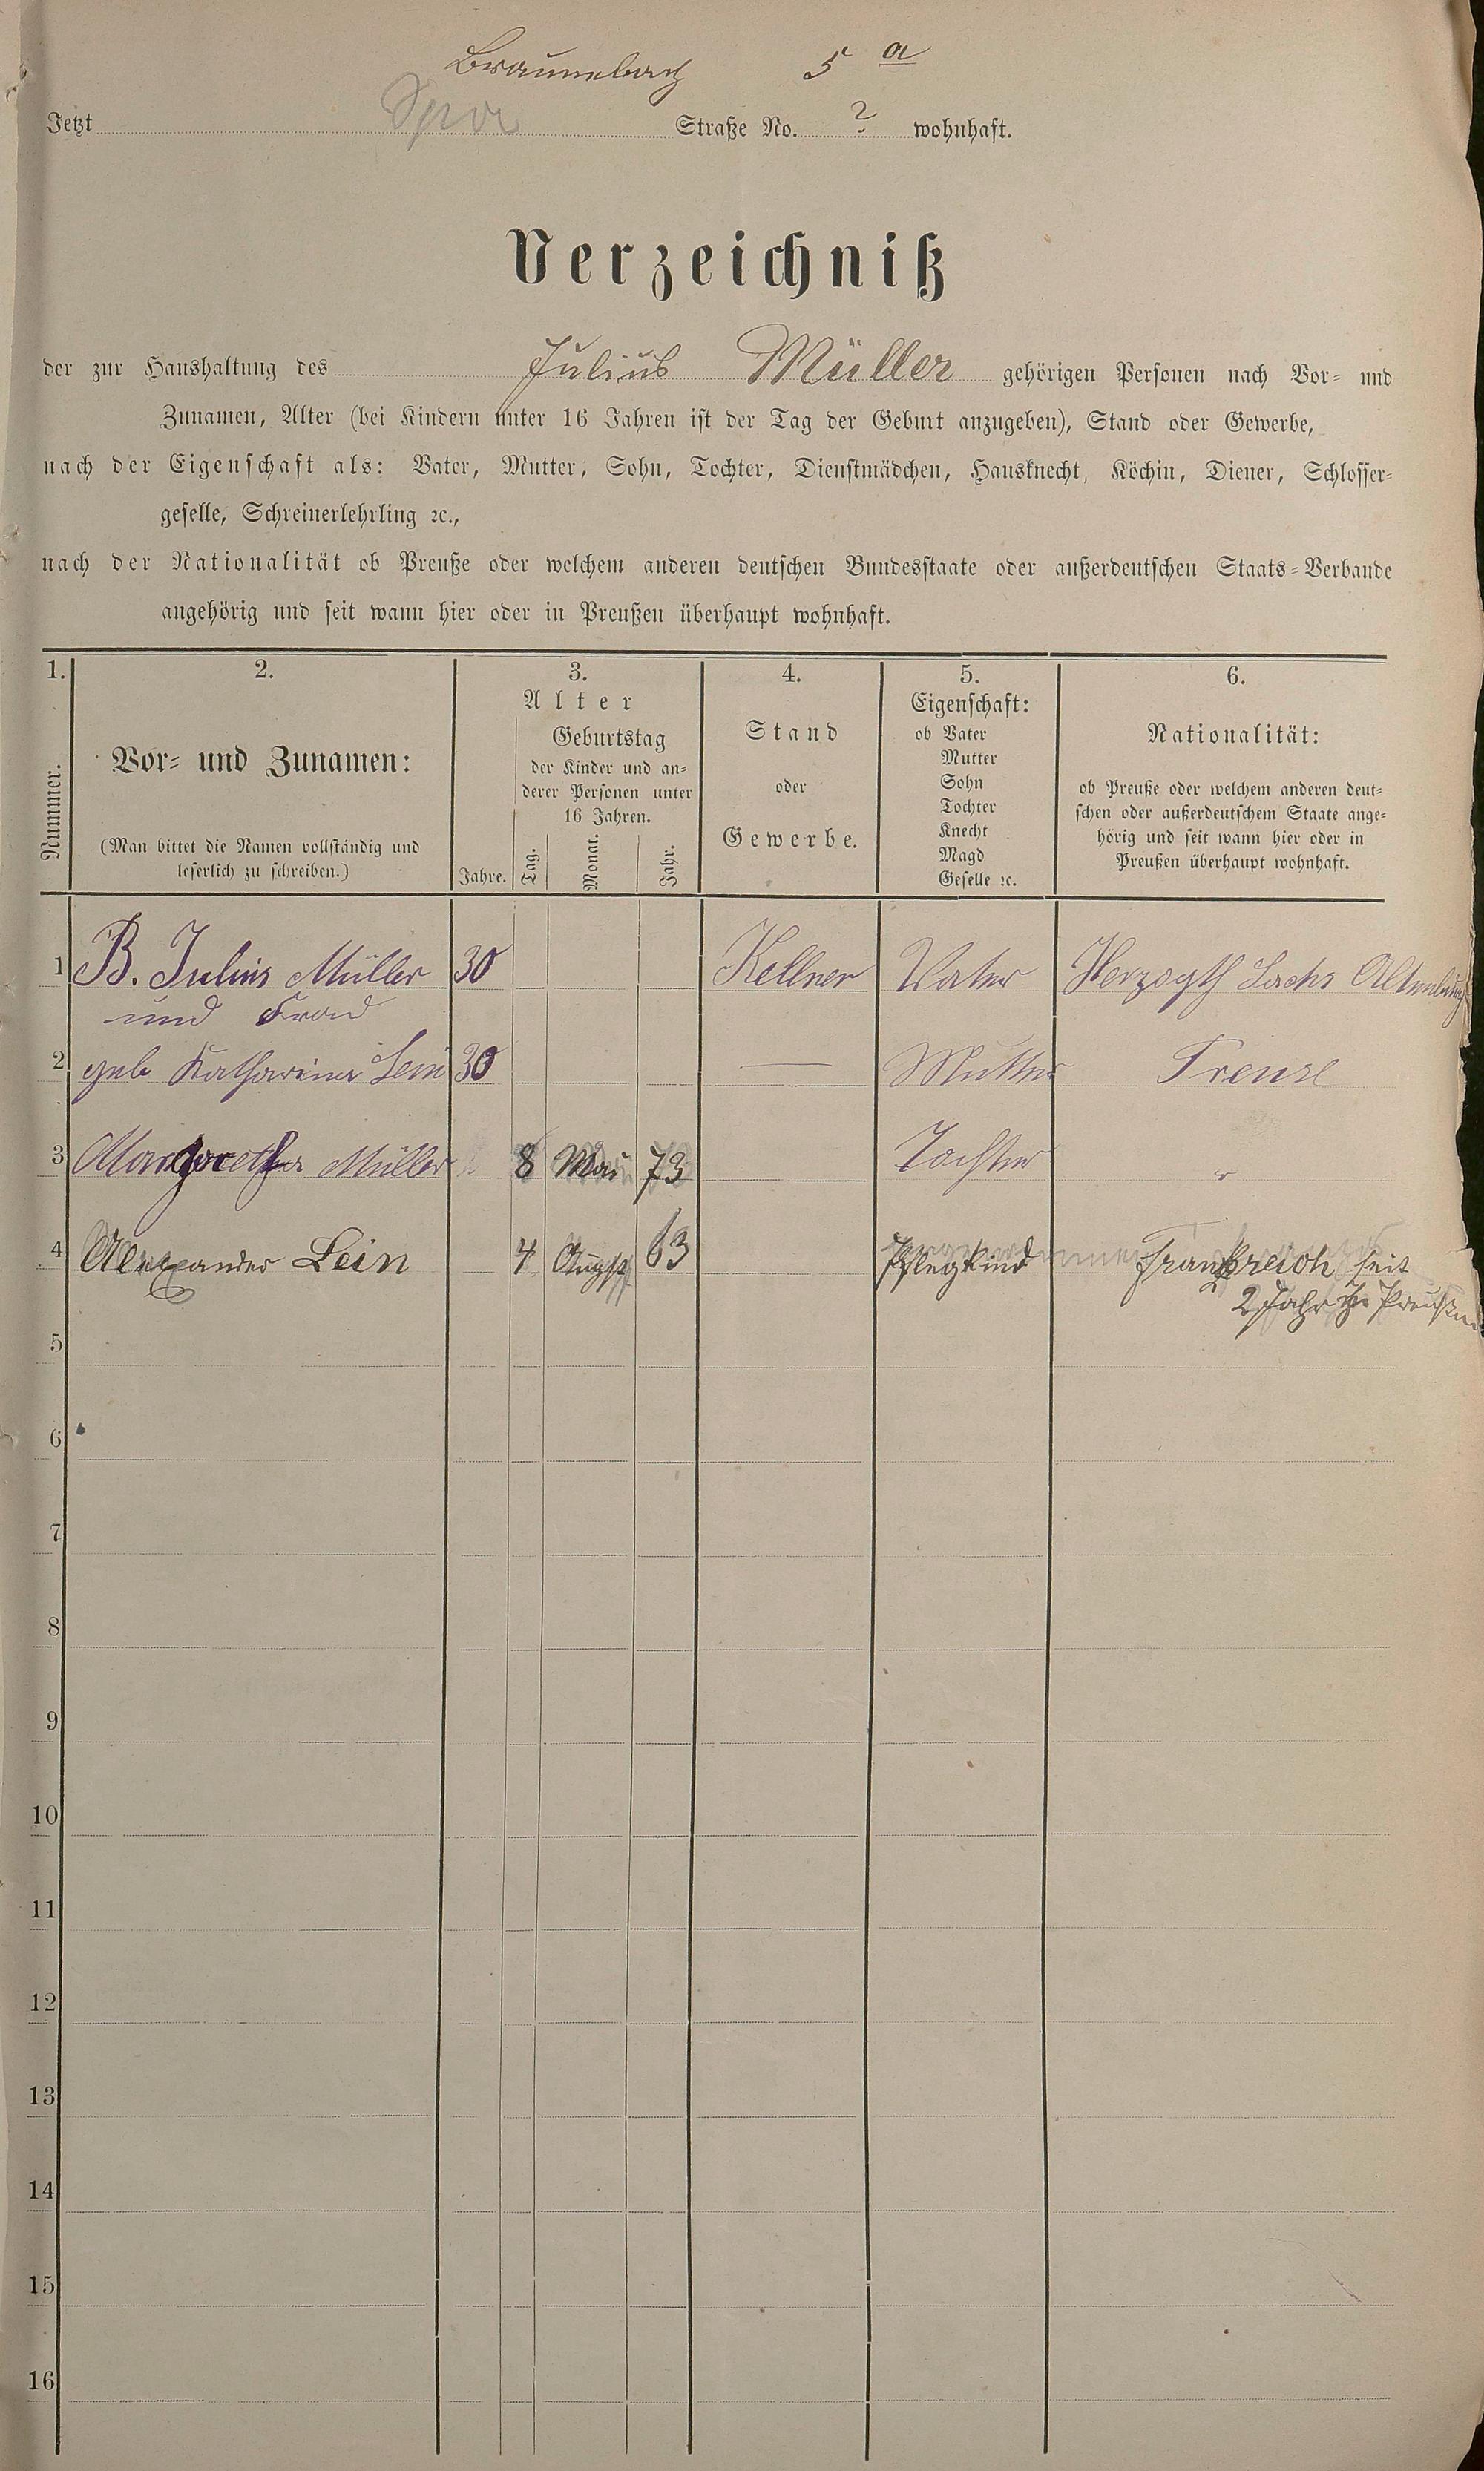 Braunebach 5 a
Jetzt Spor Straße No. 2 wohnhaft.
Verzeichniß
der zur Haushaltung des Julius Müller gehörigen Personen nach Vor- und
Zunamen, Alter (bei Kindern unter 16 Jahren ist der Tag der Geburt anzugeben), Stand oder Gewerbe,
nach der Eigenschaft als: Vater, Mutter, Sohn, Tochter, Dienstmädchen, Hausknecht, Köchin, Diener, Schlosser-
geselle, Schreinerlehrling ꝛc.,
nach der Nationalität ob Preuße oder welchem anderen deutschen Bundesstaate oder außerdeutschen Staats-Verbande
angehörig und seit wann hier oder in Preußen überhaupt wohnhaft.
1. 2. 3. 4. 5. 6.
Nummer.
Vor- und Zunamen:
(Man bittet die Namen vollständig und
leserlich zu schreiben.)
Alter
Jahre.
Geburtstag
der Kinder und an-
derer Personen unter
16 Jahren.
Tag. Monat. Jahr.
Stand
oder
Gewerbe.
Eigenschaft:
ob Vater
Mutter
Sohn
Tochter
Knecht
Magd
Geselle ꝛc.
Nationalität:
ob Preuße oder welchem anderen deut-
schen oder außerdeutschem Staate ange-
hörig und seit wann hier oder in
Preußen überhaupt wohnhaft.
1 B. Julius Müller 30 Kellner Vater Herzogth Sachs Altenburg
und Frau
2 geb Katharina Lein 30 — Mutter Preuse
3 Margaretha Müller 8 Mai 73 Tochter "
4 Alexander Lein 4 August 63 Pflegkind Frankreich seit
2 Jahr in Preußen
5
6
7
8
9
10
11
12
13
14
15
16